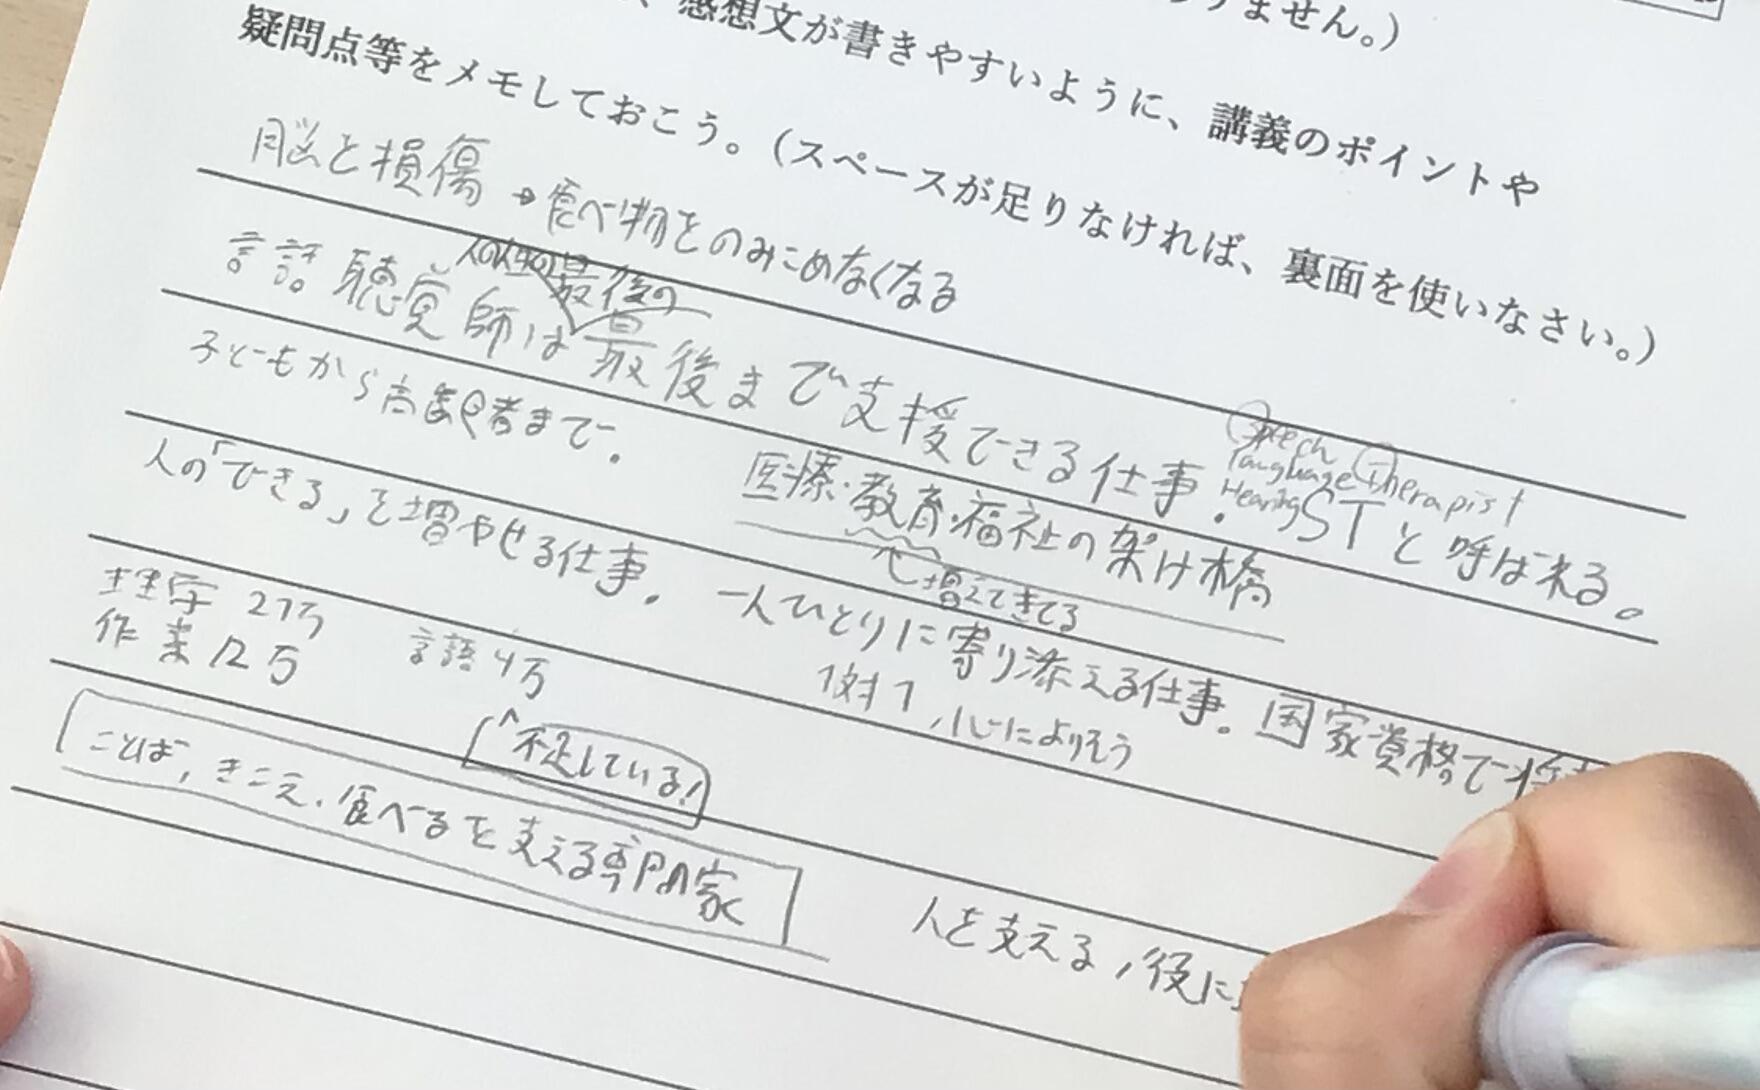 ません。）
、感想文が書きやすいように、講義のポイントや
疑問点等をメモしておこう。（スペースが足りなければ、裏面を使いなさい。）
脳と損傷→食べ物をのみこめなくなる
人の人生の最後の
言語聴覚師は最後まで支援できる仕事.
Speech
language Therapist
Hearing
STと呼ばれる。
子どもから高齢者まで。
医療・教育・福祉の架け橋
増えてきてる
人の「できる」を増やせる仕事.
一人ひとりに寄り添える仕事。国家資格で
1対1,心によりそう
理学 21万
作業 12万
言語 4万
不足している!
ことば,きこえ.食べるを支える専門家
人を支える,役に